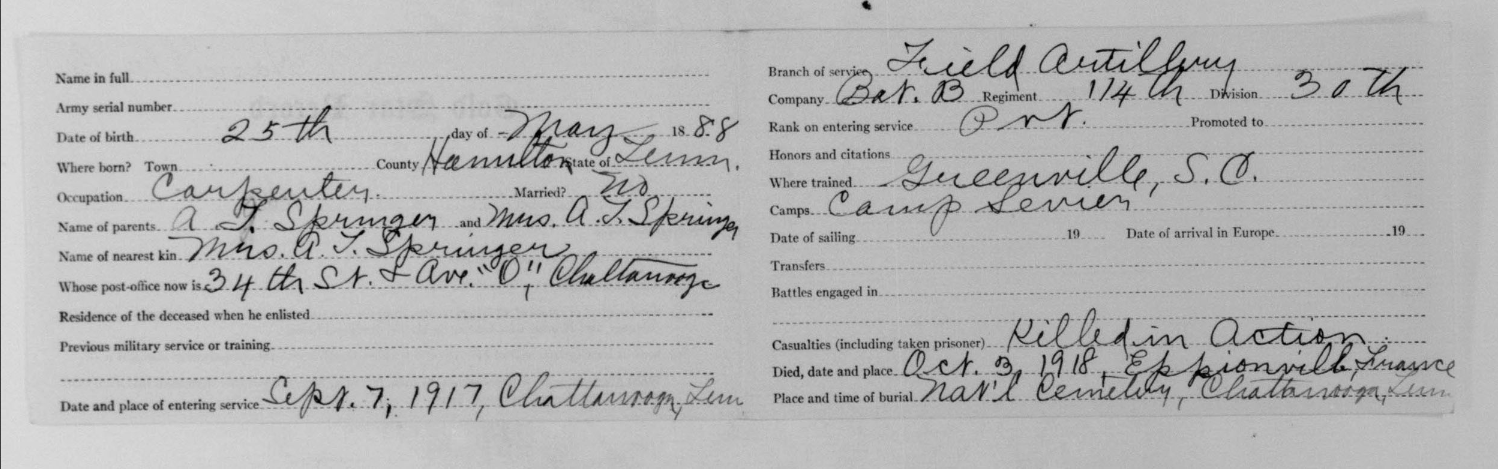 Name in full
Army serial number
Date of birth 25th day of May 1888
Where born? Town County Hamilton State of Tenn.
Occupation Carpenter. Married? No
Name of parents A. T. Springer and Mrs. A. T. Springer
Name of nearest kin Mrs. A. T. Springer
Whose post-office now is 34th St. & Ave. "O", Chattanooga
Residence of the deceased when he enlisted
Previous military service or training
Date and place of entering service Sept. 7, 1917, Chattanooga, Tenn
Branch of service Field Artillery
Company Bat. B Regiment 114th Division 30th
Rank on entering service Pvt. Promoted to
Honors and citations
Where trained Greenville, S.C.
Camps Camp Sevier
Date of sailing 19 Date of arrival in Europe 19
Transfers
Battles engaged in
Casualties (including taken prisoner) Killed in Action.
Died, date and place Oct. 3, 1918, Eppionville, France
Place and time of burial Nat'l Cemetery, Chattanooga, Tenn